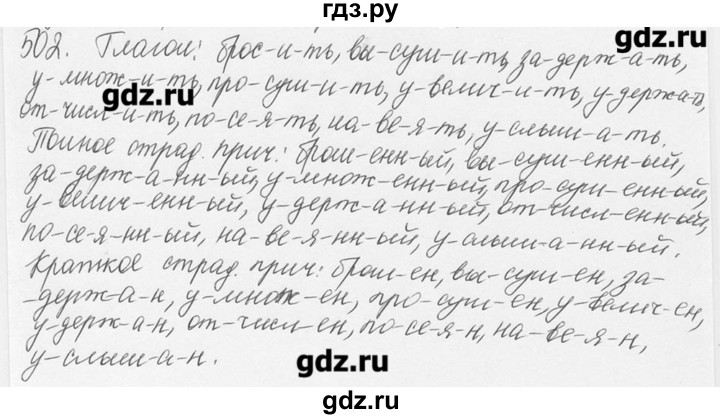 гдз.ру
502. Глагол: брос-и-ть, вы-суш-и-ть, за-держ-а-ть,
gdz.ru
у-множ-и-ть, про-суш-и-ть, у-велич-и-ть, у-держ-а-ть,
gdz.ru
от-числ-и-ть, по-се-я-ть, на-ве-я-ть, у-слыш-а-ть.
Полное страд. прич.: брош-енн-ый, вы-суш-енн-ый,
за-держ-а-нн-ый, у-множ-енн-ый, про-суш-енн-ый,
gdz.ru
у-велич-енн-ый, у-держ-а-нн-ый, от-числ-енн-ый,
по-се-я-нн-ый, на-ве-я-нн-ый, у-слыш-а-нн-ый.
Краткое страд. прич.: брош-ен, вы-суш-ен, за-
-держ-а-н, у-множ-ен, про-суш-ен, у-велич-ен,
у-держ-а-н, от-числ-ен, по-се-я-н, на-ве-я-н,
у-слыш-а-н.
gdz.ru
gdz.ru